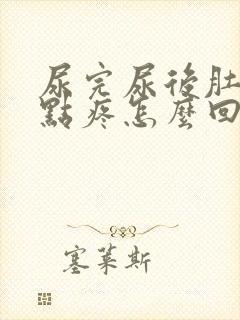 尿完尿後肚
點疼怎麼回
塞萊斯